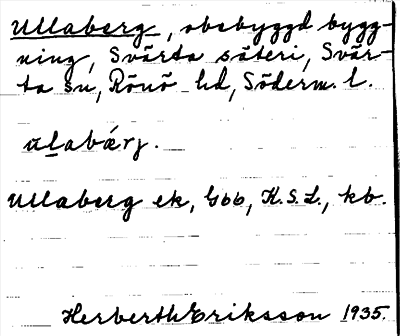 Ullaberg, obebyggd bygg-
ning, Svärta säteri, Svär-
ta sn, Rönö hd, Söderm. l.
ulabárj.
Ullaberg ek, Gbb, K.S.L., kb.
Herberth Eriksson 1935.